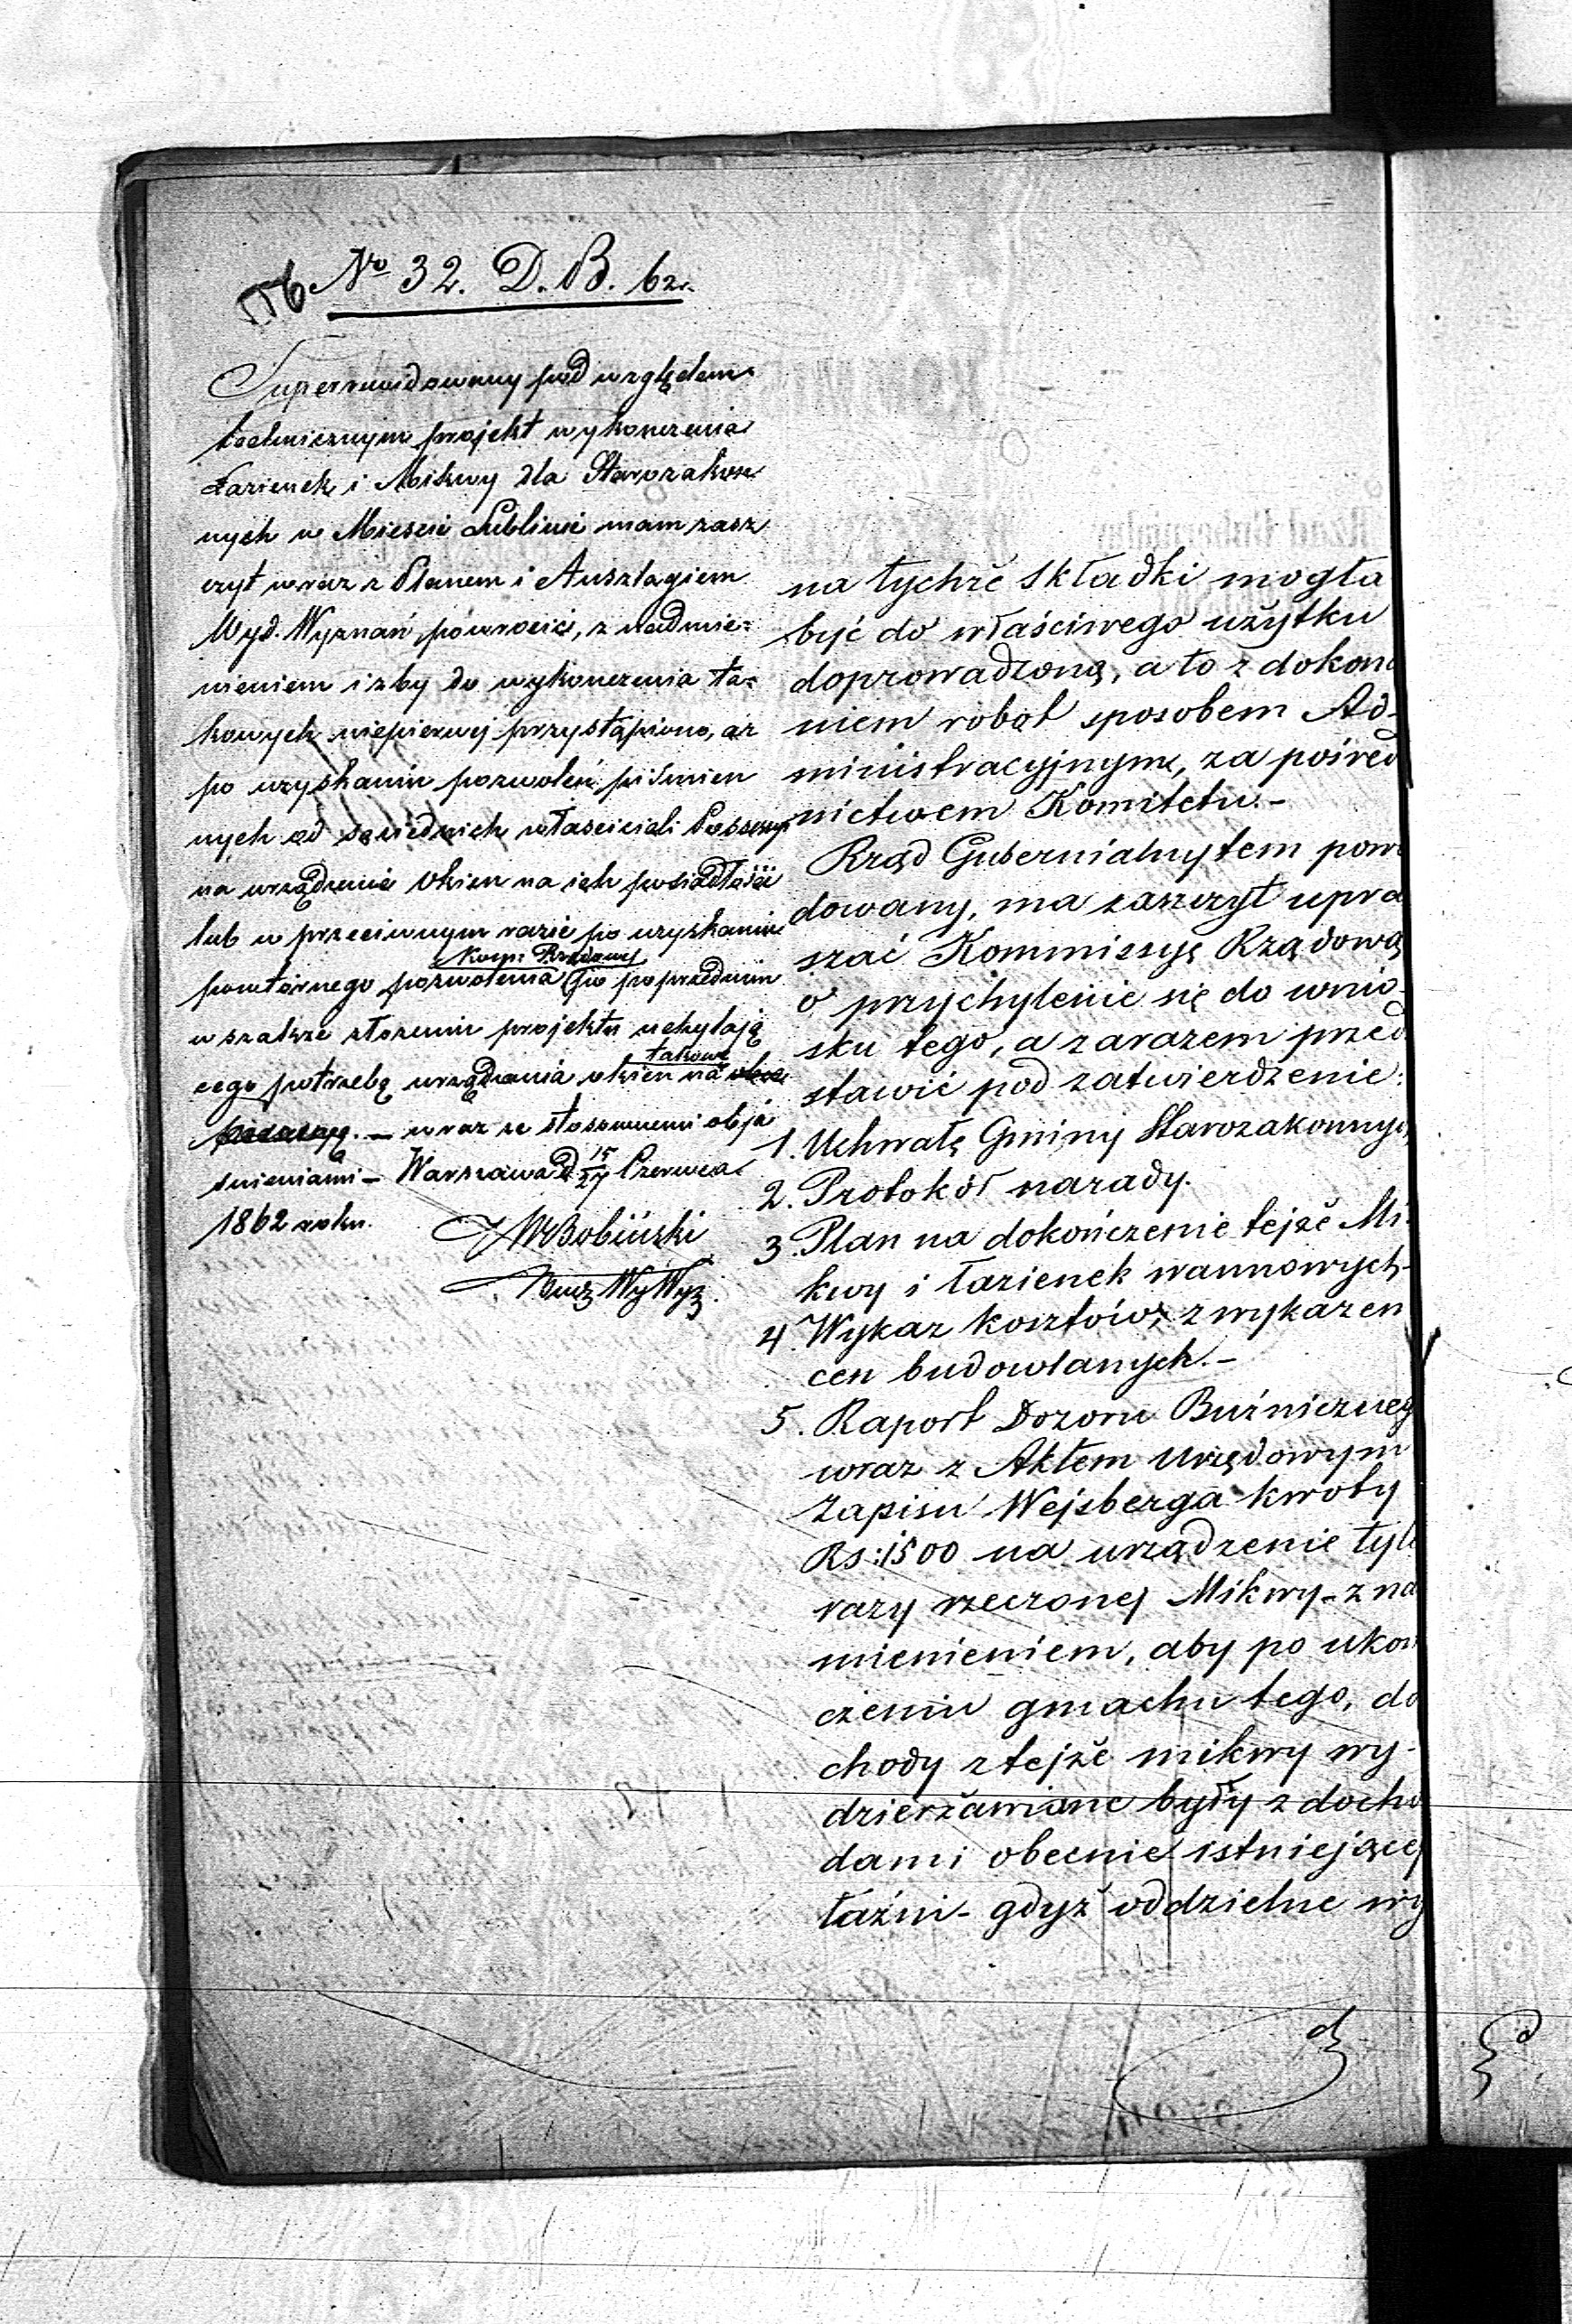 No 32. D. B. 62.
Superrewidowany pod względem
technicznym projekt wykończenia
Łazienek i Mikwy dla Starozakon
nych w Mieście Lublinie mam zasz
czyt wraz z Planem i Anszlagiem
Wyd. Wyznań powrócić, z nadmie=
nieniem iżby do wykończenia ta=
kowych niepierwej przystąpiono, aż
po uzyskaniu pozwoleń piśmien
nych od sąsiednich właścicieli
na urządzenie okien na ich posiadłości
lub w przeciwnym razie po uzyskaniu
Kom: Rządowej
powtórnego pozwolenia po poprzednim
wszakże złożeniu projektu uchylają
takowe
cego potrzebę urządzenia okien na
– wraz ze stosownemi obja
śnieniami – Warszawa d 15/27 Czerwca
1862 roku.
Bobiński
na tychże składki mogła
być do właściwego użytku
doprowadzoną, a to z dokona
niem robót sposobem Ad-
ministracyjnym, za pośred
nictwem Komitetu.–
Rząd Gubernialny tem powo
dowany, ma zaszczyt upra
szać Kommissyę Rządową
o przychylenie się do wnio-
sku tego, a zarazem przed
stawić pod zatwierdzenie:
1. Uchwałę Gminy Starozakonnych
2. Protokół narady.
3. Plan na dokończenie tejże Mi-
kwy i łazienek wannowych-
4. Wykaz kosztów, z wykazem
cen budowlanych.–
5. Raport Dozoru Bużniczneg
wraz z Aktem Urzędowym
Zapisu Wejsberga kwoty
Rs: 1500 na urządzenie tyle
razy rzeczonej Mikwy - z nad
mienieniem, aby po ukoń
czeniu gmachu tego, do
chody z tejże mikwy wy-
dzierżawione były z docho
dami obecnie istniejącej
łaźni - gdyż oddzielne wy